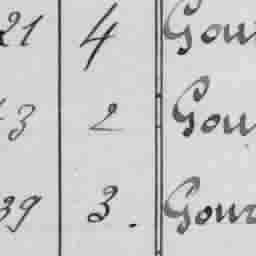 21 4 Gou
3 2 Gou
39 3. Gour